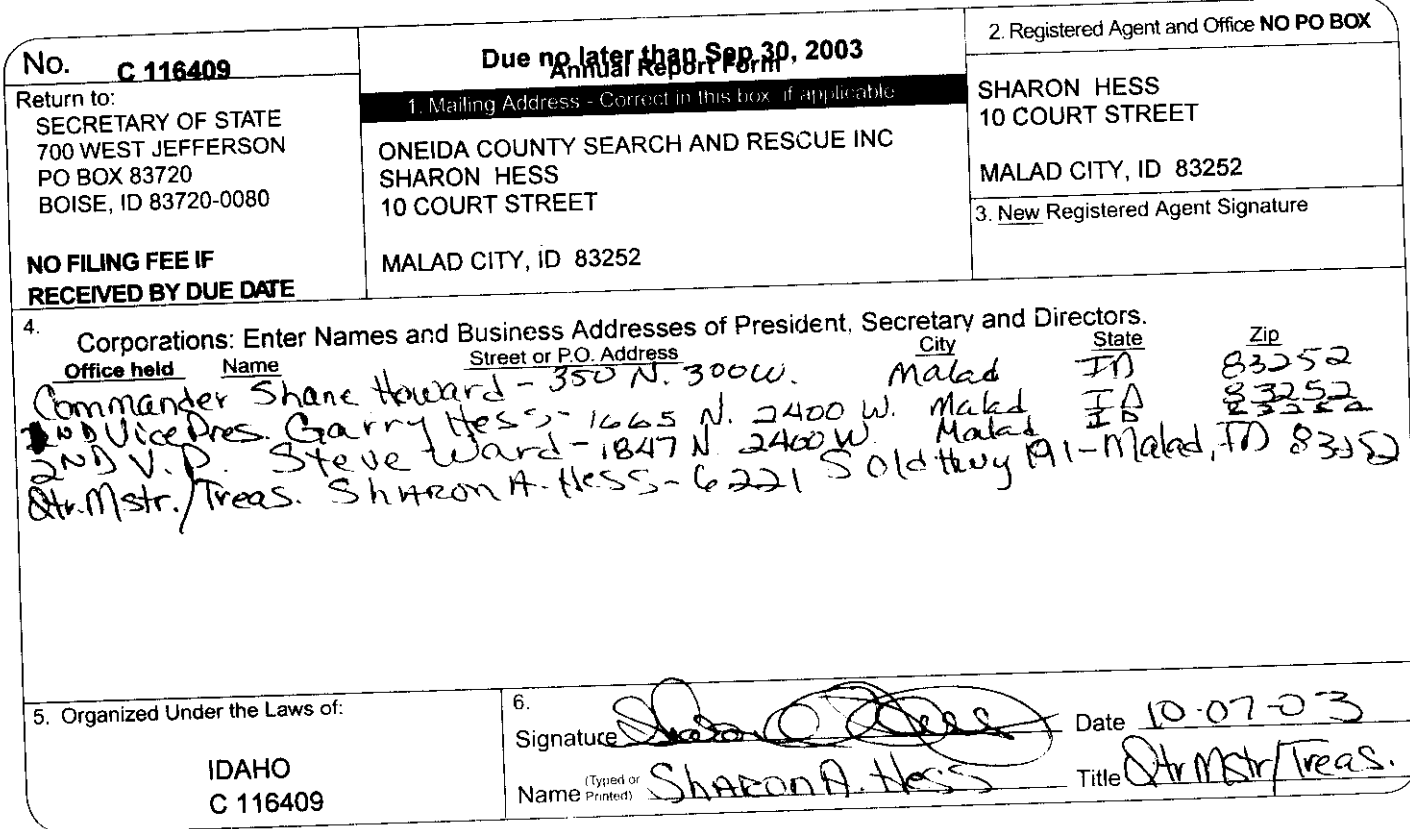 No. C 116409
Return to:
SECRETARY OF STATE
700 WEST JEFFERSON
PO BOX 83720
BOISE, ID 83720-0080
NO FILING FEE IF
RECEIVED BY DUE DATE
Due no later than Sep 30, 2003
Annual Report Form
1. Mailing Address - Correct in this box if applicable
ONEIDA COUNTY SEARCH AND RESCUE INC
SHARON HESS
10 COURT STREET
MALAD CITY, ID 83252
2. Registered Agent and Office NO PO BOX
SHARON HESS
10 COURT STREET
MALAD CITY, ID 83252
3. New Registered Agent Signature
4. Corporations: Enter Names and Business Addresses of President, Secretary and Directors.
Office held Name Street or P.O. Address City State Zip
Commander Shane Howard - 350 N. 300 W. Malad ID 83252
Vice Pres. Garry Hess - 1665 N. 2400 W. Malad ID 83252
2ND V.P. Steve Ward - 1847 N. 2400 W. Malad ID 83252
Qtr.Mstr./Treas. Sharon A. Hess - 6221 S Old Hwy 191 - Malad, ID 83252
5. Organized Under the Laws of:
IDAHO
C 116409
6.
Signature Sharon A Hess Date 10-07-03
Name (Typed or Printed) Sharon A. Hess Title Qtr Mstr/Treas.